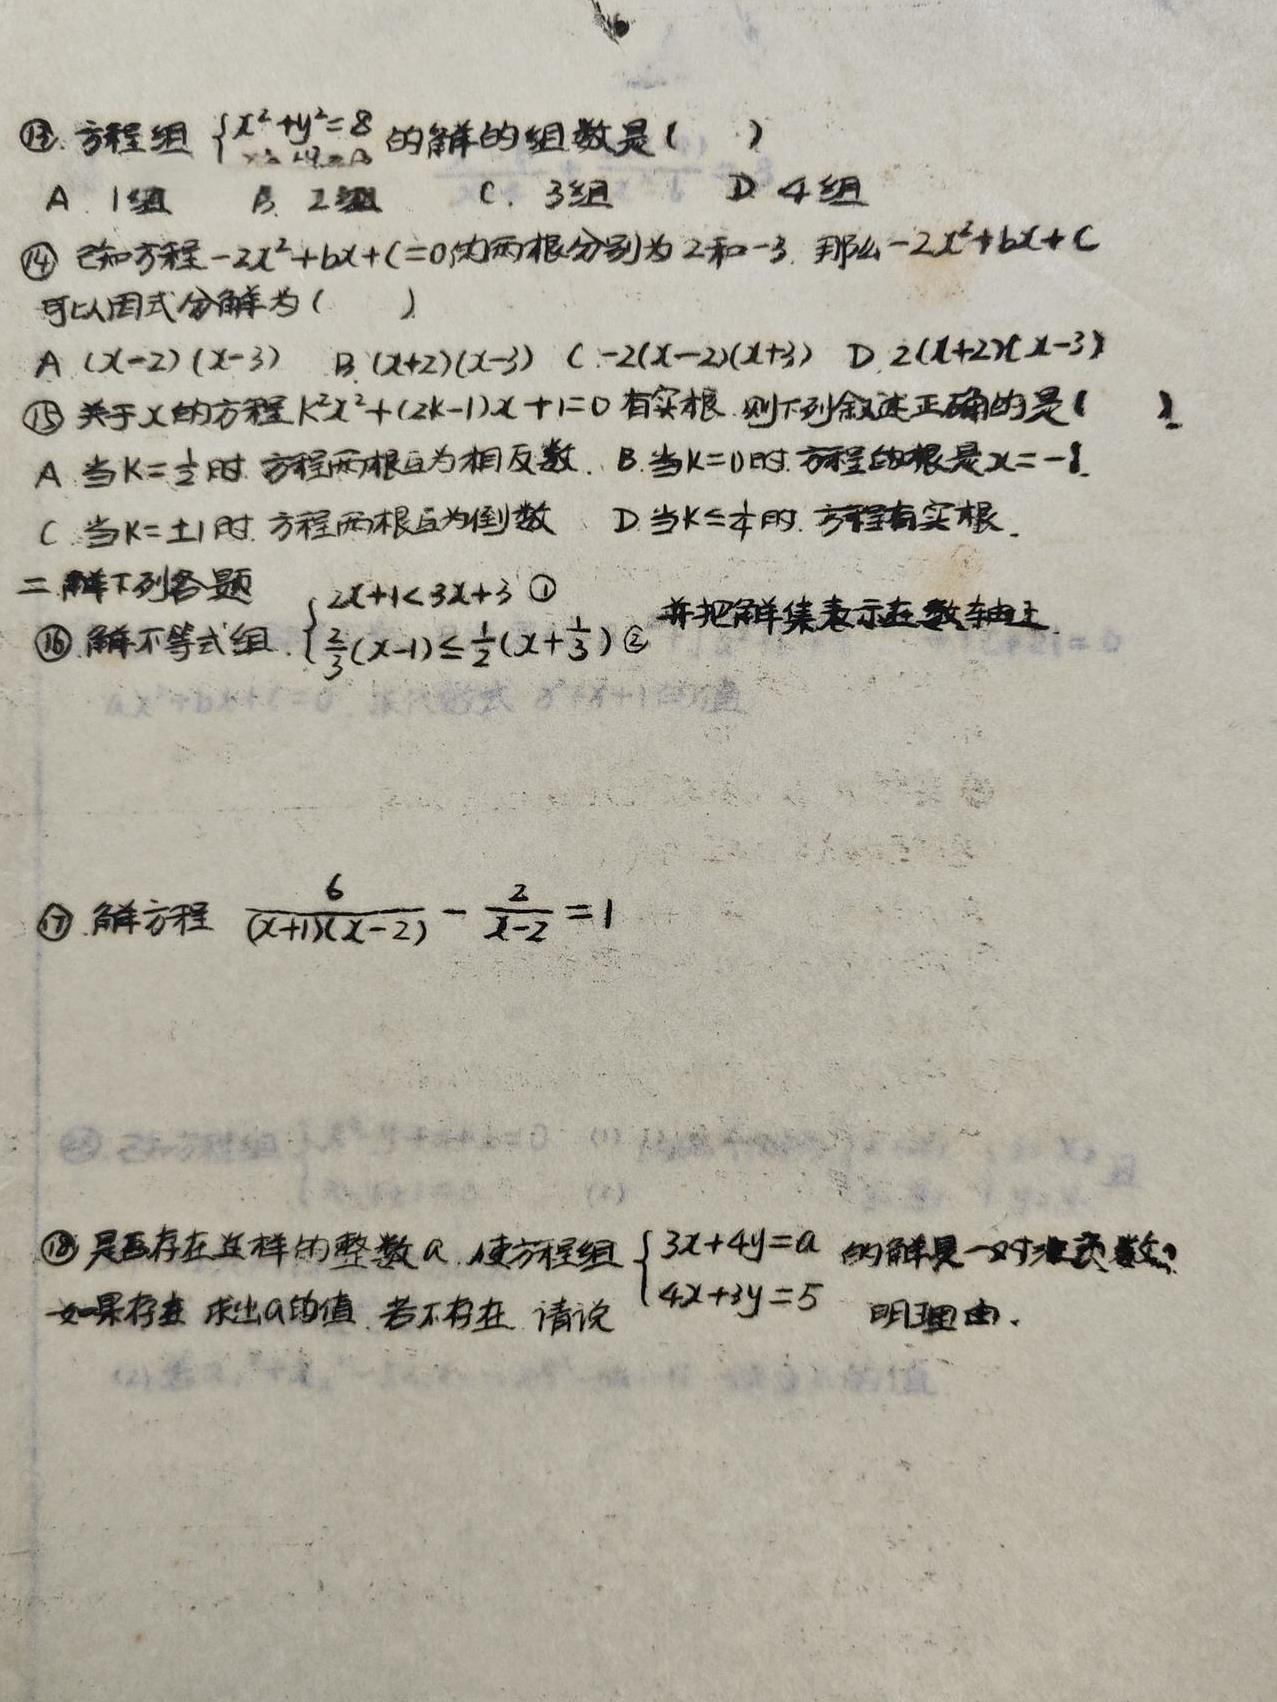 ⑬.方程组 {x²+y²=8 的解的组数是( )
A. 1组 B. 2组 C. 3组 D. 4组
⑭ 已知方程-2x²+bx+c=0的两根分别为2和-3. 那么-2x²+bx+c
可以因式分解为( )
A (x-2)(x-3) B.(x+2)(x-3) C.-2(x-2)(x+3) D.2(x+2)(x-3)
⑮ 关于x的方程k²x²+(2k-1)x+1=0有实根.则下列叙述正确的是( )
A.当k=1/2时.方程两根互为相反数. B.当k=0时.方程的根是x=-1.
C.当k=±1时.方程两根互为倒数 D.当k≤1/4时.方程有实根.
二.解下列各题
⑯.解不等式组.{2x+1<3x+3 ① 2/3(x-1)≤1/2(x+1/3) ② 并把解集表示在数轴上.
⑰.解方程 6/((x+1)(x-2)) - 2/(x-2) =1
⑱.是否存在这样的整数a.使方程组{3x+4y=a 4x+3y=5 的解是一对非负数?
如果存在 求出a的值.若不存在.请说明理由.